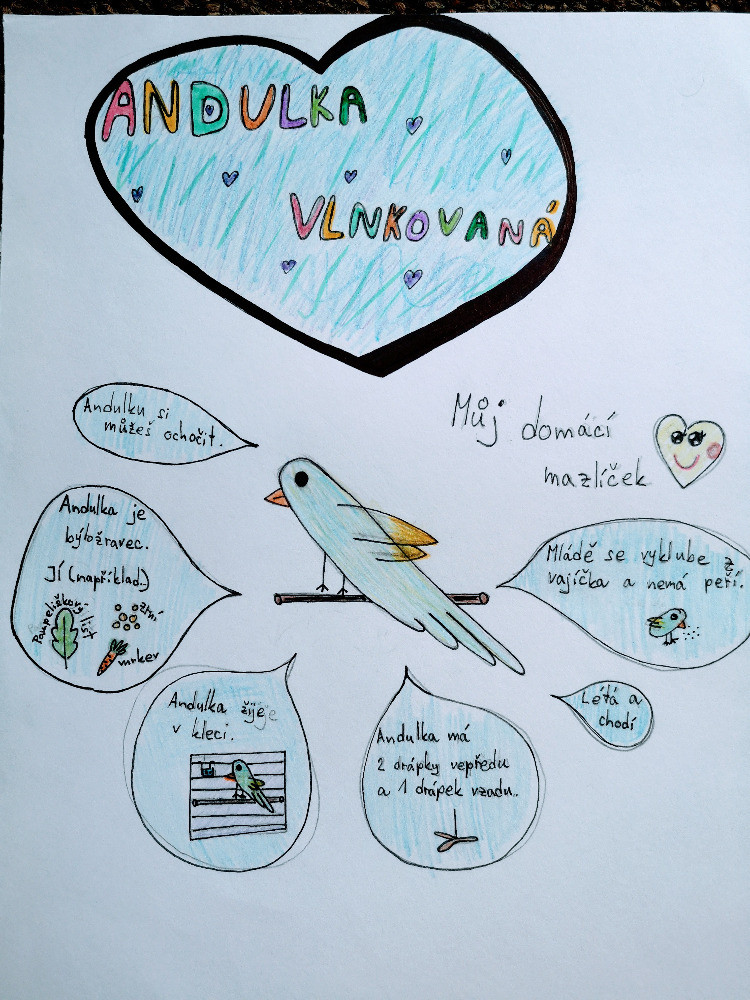 ANDULKA
VLNKOVANÁ
Můj domácí
mazlíček
Andulku si
můžeš ochočit.
Andulka je
býložravec.
Jí (například)
Pampeliškový list
zrní
mrkev
Mládě se vyklube z
vajíčka a nemá peří.
Andulka žije
v kleci.
Andulka má
2 drápky vepředu
a 1 drápek vzadu.
Létá a
chodí